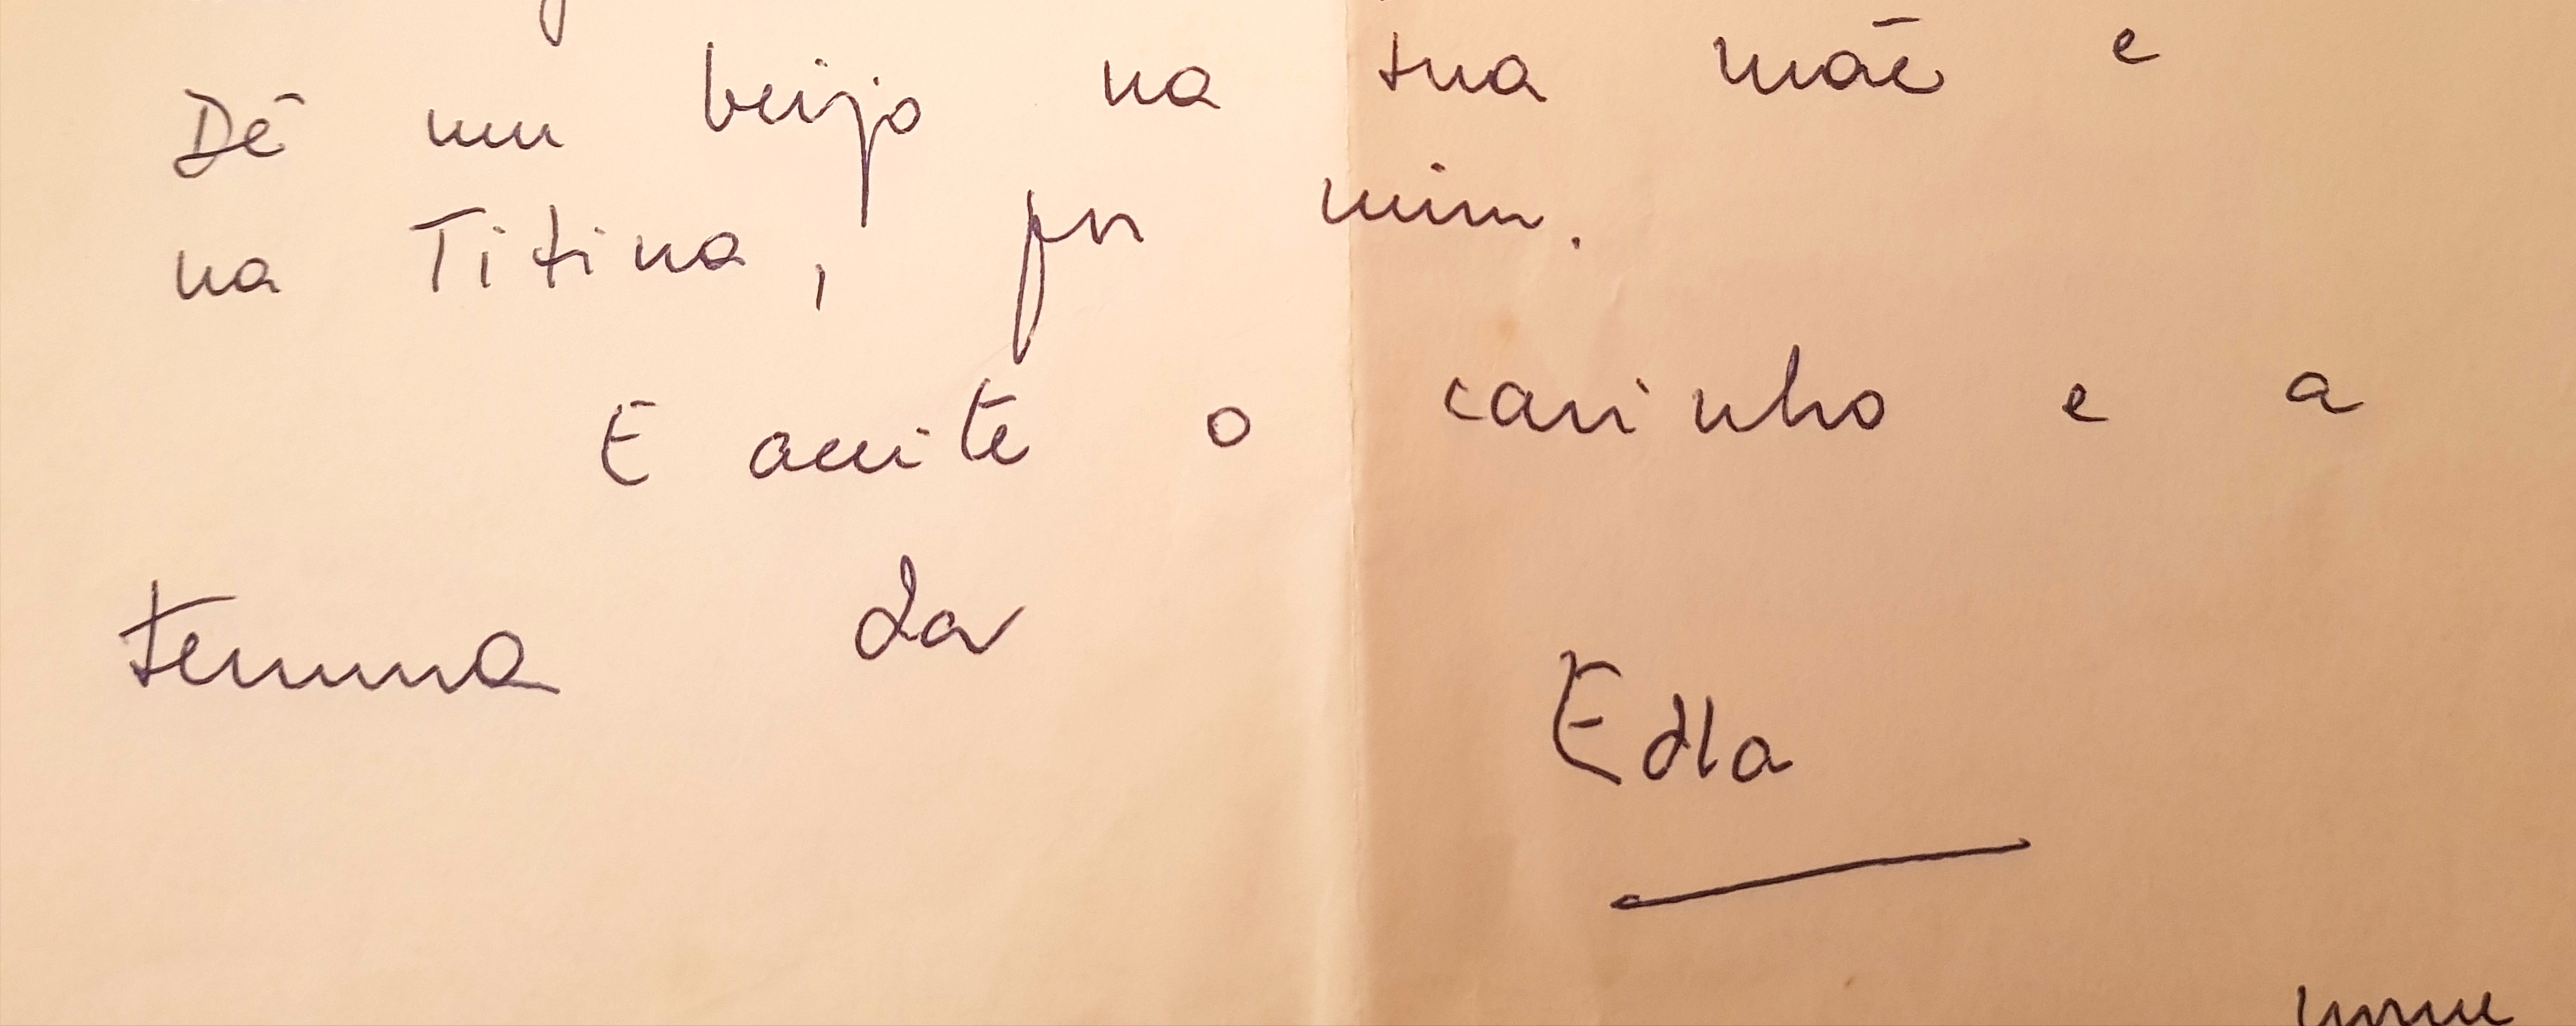 Dê um beijo na tua mãe e
na Titina, por mim.
E aceite o carinho e a
ternura da
Edla